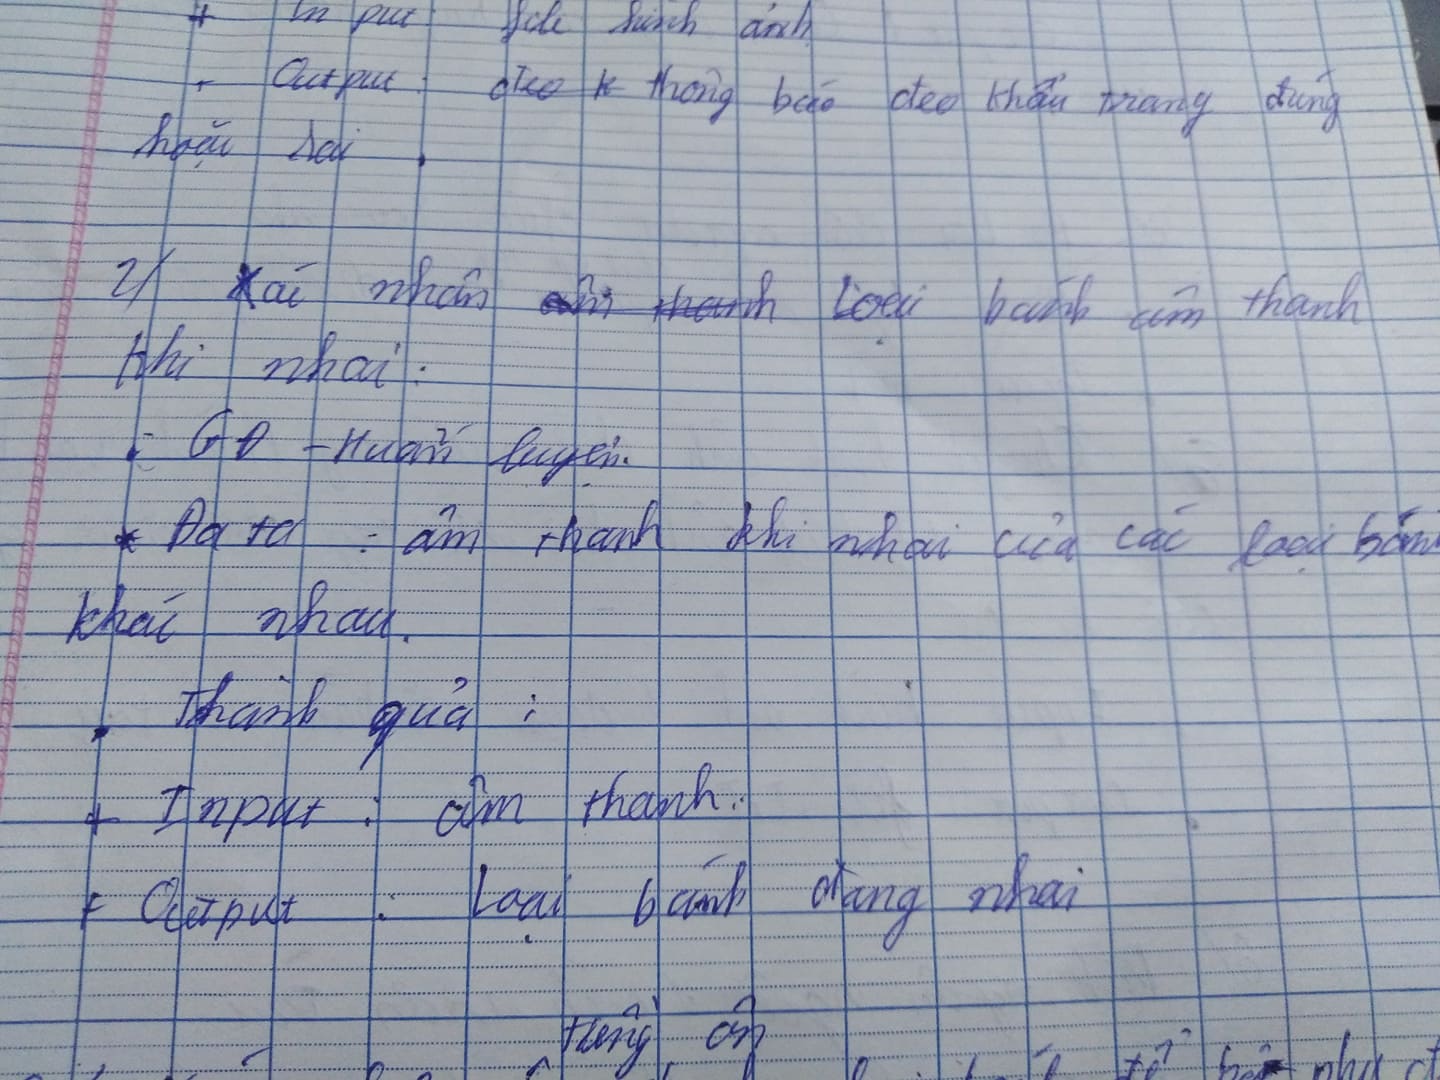 + Input file hình ảnh
- Output : thông báo đeo khẩu trang đúng
hoặc sai .
2/ Xác nhận loại bánh âm thanh
khi nhai :
GĐ - Huấn luyện.
* Data : âm thanh khi nhai của các loại bánh
khác nhau.
. Thành quả :
+ Input : âm thanh.
+ Output : Loại bánh đang nhai
tiếng ồn